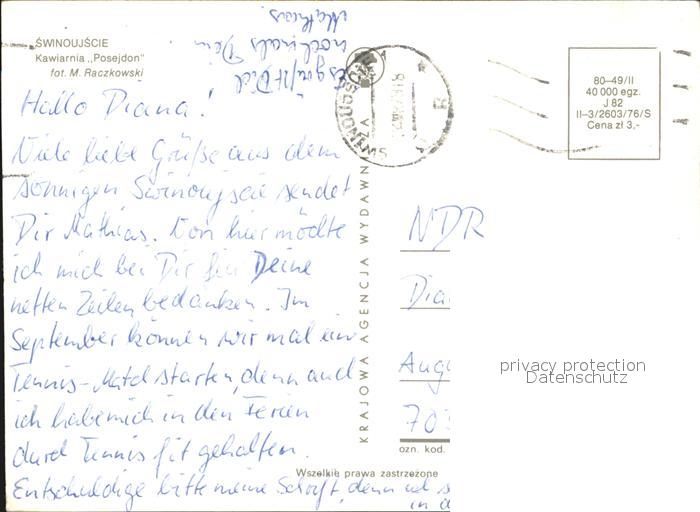 ŚWINOUJŚCIE
Kawiarnia „Posejdon"
fot. M. Raczkowski
Hallo Diana!
Viele liebe Grüße aus dem
sonnigen Swinoujscie sendet
Dir Mathias. Von hier möchte
ich mich bei Dir für Deine
netten Zeilen bedanken. Im
September können wir mal ein
Tennis-Match starten, denn auch
ich habe mich in den Ferien
durch Tennis fit gehalten.
Entschuldige bitte meine Schrift, denn ich s
in d
Es grüßt Dich
nochmals Dein
Mathias
KRAJOWA AGENCJA WYDAWN
A
80—49/II
40 000 egz.
J 82
II—3/2603/76/S
Cena zł 3,-
NDR
Dia
Augu
703
ozn. kod.
Wszelkie prawa zastrzeżone
privacy protection
Datenschutz